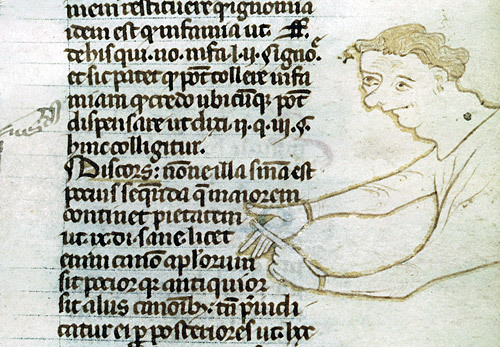 restituere q̄ ignomia
idem est q̄ infamia ut. ff.
de his qui. no. infa. l. ii. § igno.
et sic patet q̄ pōt tollere infa
miam q̄ credo ubicūq; pōt
dispensare ut dixi. ii. q. iii. §.
hinc colligitur.
Discors: nōne illa sn̄ia est
pocius seq̄nda q̄ maiorem
continet pietatem
ut ix. di. sane licet
enim canon ap̄lorum
sit pocior qr antiquior
sit aliis canonib; tn̄ p̄iudi
catur ei p̄ posteriores ut. lxx